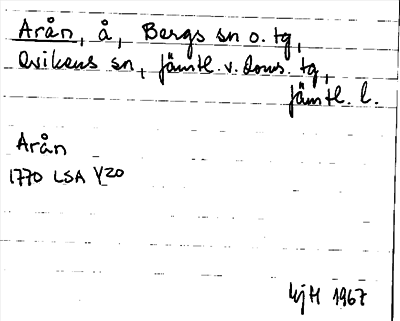 Arån, å, Bergs sn o. tg,
Ovikens sn, Jämtl. v. doms. tg,
Jämtl. l.
Arån
1770 LSA Y20
WjH 1967